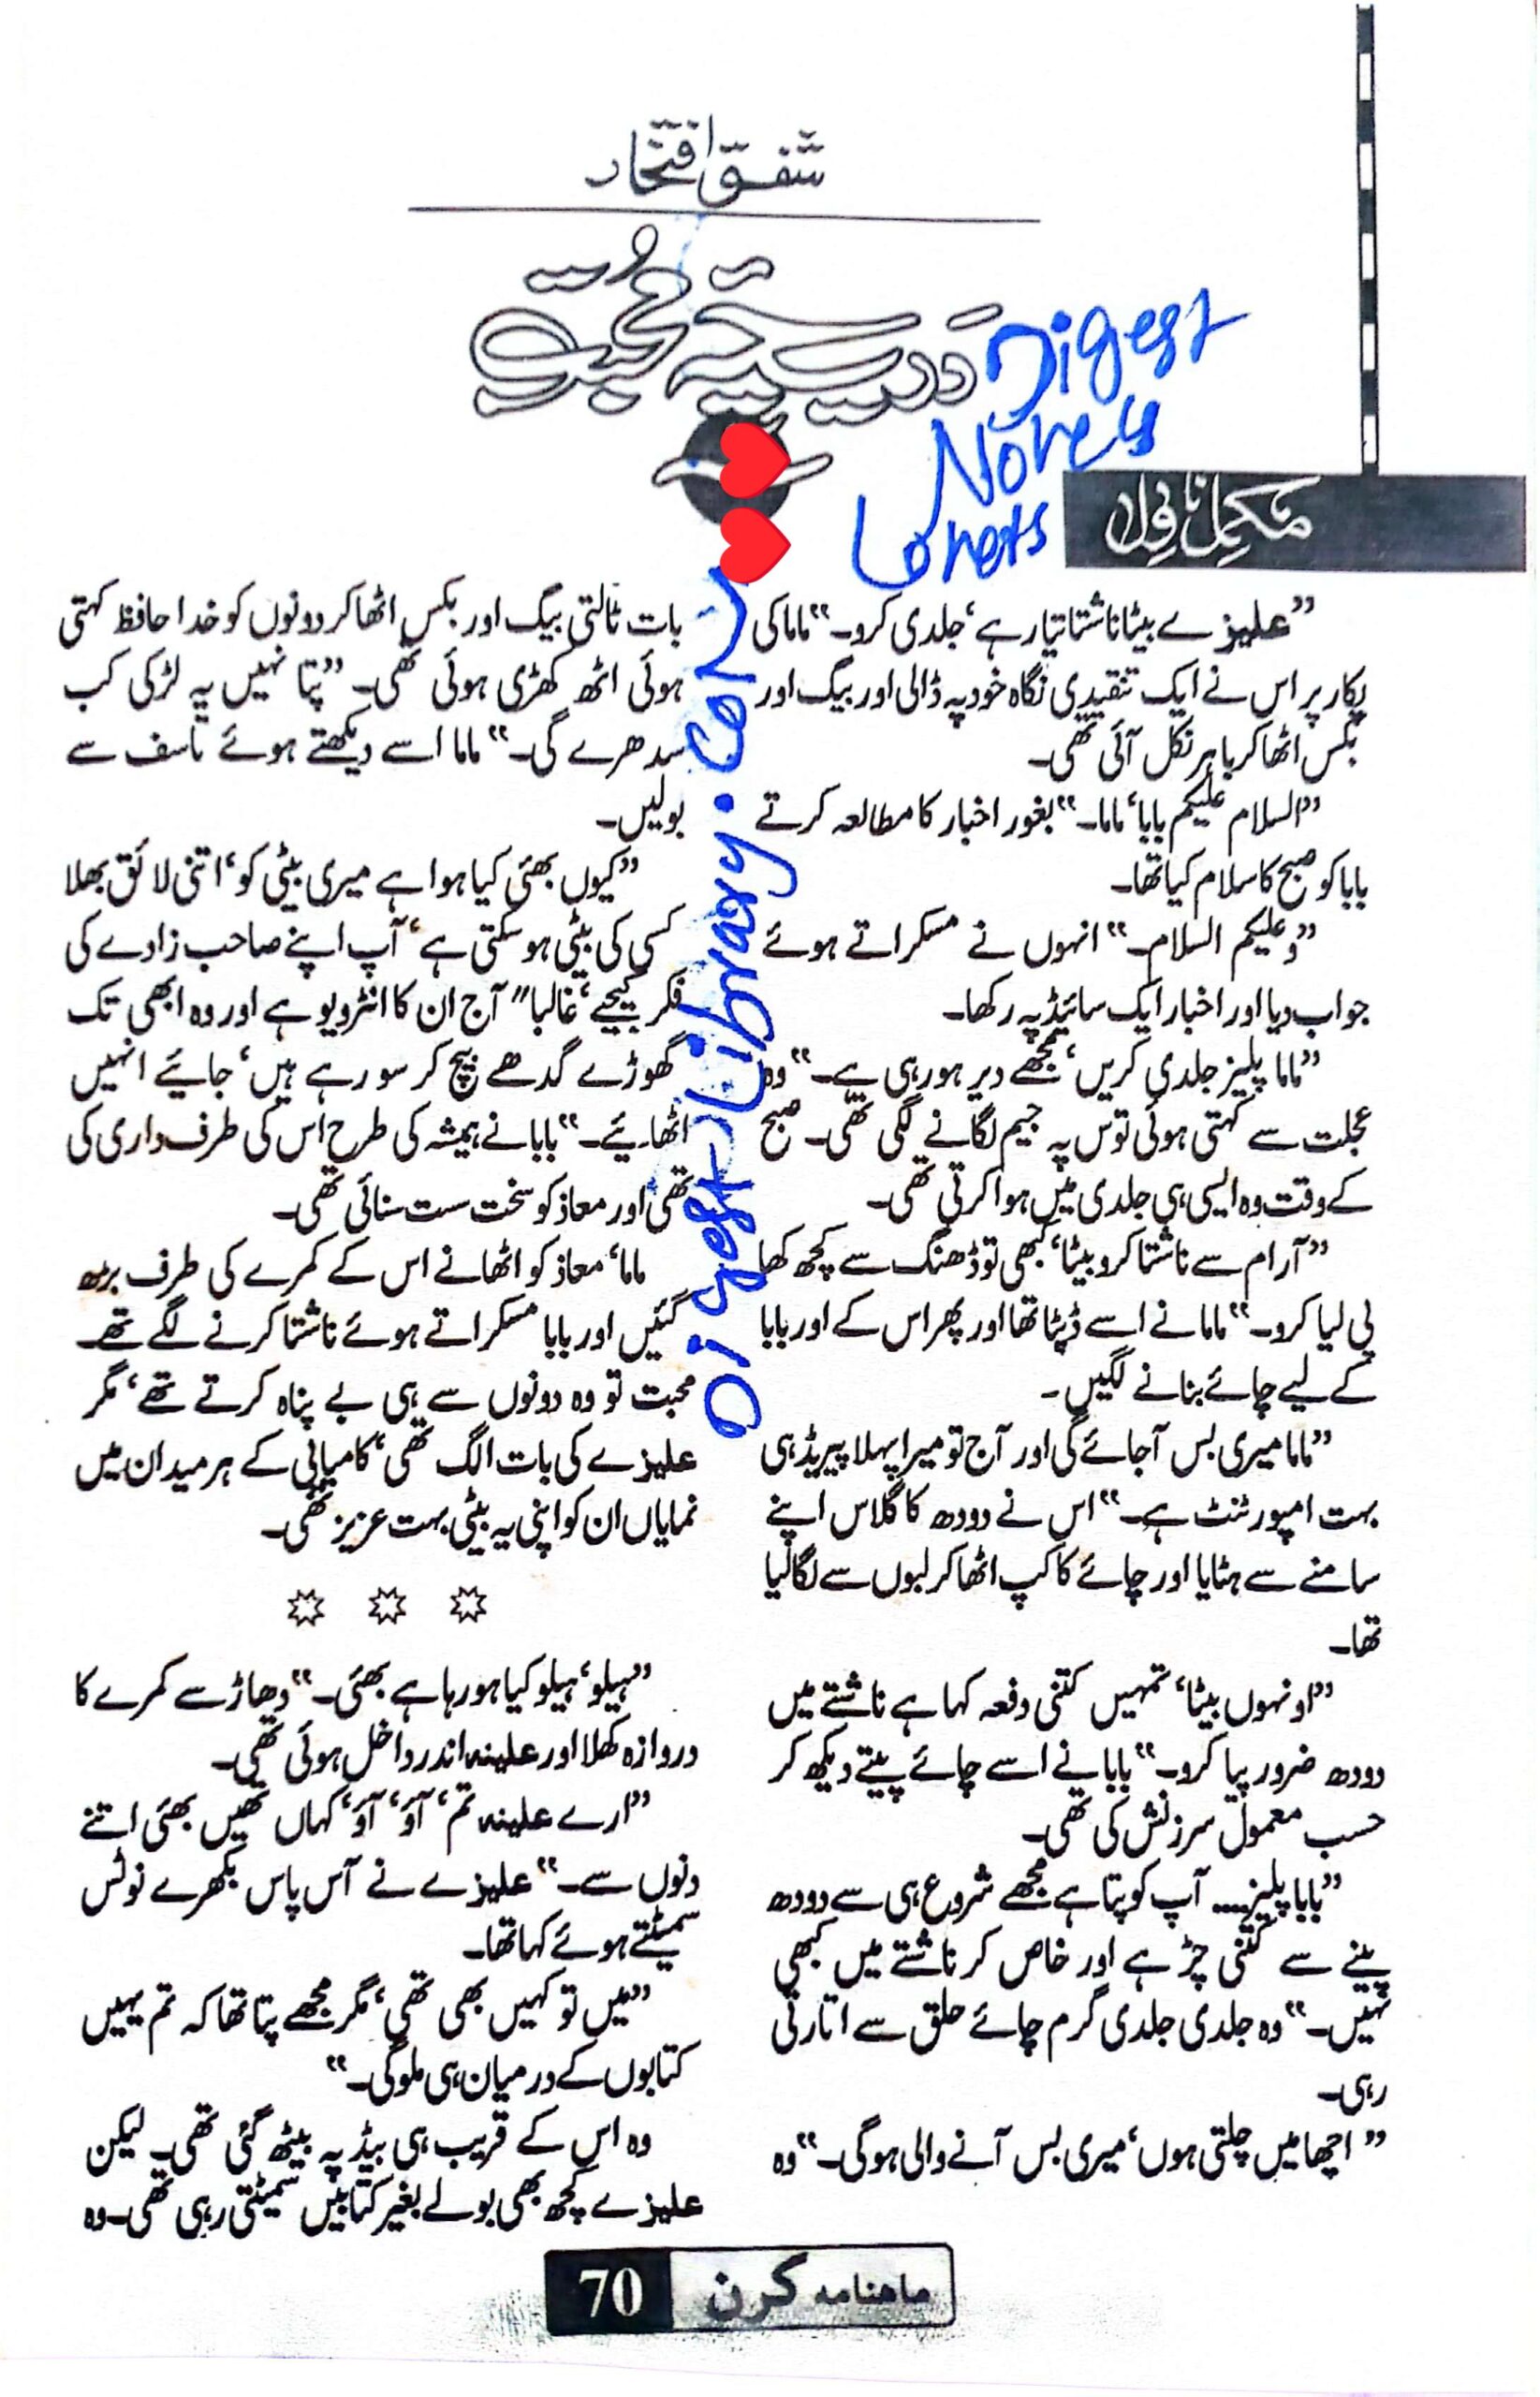 شفق افتخار
دریچۂ محبت
Digest
Novels
Lovers
مکمل ناول
”علیزے بیٹا ناشتا تیار ہے‘ جلدی کرو۔“ ماما کی
پکار پر اس نے ایک تنقیدی نگاہ خود پہ ڈالی اور بیگ اور
بکس اٹھا کر باہر نکل آئی تھی۔
”السلام علیکم بابا‘ ماما۔“ بغور اخبار کا مطالعہ کرتے
بابا کو صبح کا سلام کیا تھا۔
”وعلیکم السلام۔“ انہوں نے مسکراتے ہوئے
جواب دیا اور اخبار ایک سائیڈ پہ رکھا۔
”ماما پلیز جلدی کریں‘ مجھے دیر ہو رہی ہے۔“ وہ
عجلت سے کہتی ہوئی توس پہ جیم لگانے لگی تھی۔ صبح
کے وقت وہ ایسی ہی جلدی میں ہوا کرتی تھی۔
”آرام سے ناشتا کرو بیٹا‘ کبھی تو ڈھنگ سے کچھ کھا
پی لیا کرو۔“ ماما نے اسے ڈپٹا تھا اور پھر اس کے اور بابا
کے لیے چائے بنانے لگیں۔
”ماما میری بس آجائے گی اور آج تو میرا پہلا پیریڈ ہی
بہت امپورٹنٹ ہے۔“ اس نے دودھ کا گلاس اپنے
سامنے سے ہٹایا اور چائے کا کپ اٹھا کر لبوں سے لگا لیا
تھا۔
”اونہوں بیٹا‘ تمہیں کتنی دفعہ کہا ہے ناشتے میں
دودھ ضرور پیا کرو۔“ بابا نے اسے چائے پیتے دیکھ کر
حسب معمول سرزنش کی تھی۔
”بابا پلیز.... آپ کو پتا ہے مجھے شروع ہی سے دودھ
پینے سے کتنی چڑ ہے اور خاص کر ناشتے میں کبھی
نہیں۔“ وہ جلدی جلدی گرم چائے حلق سے اتارتی
رہی۔
”اچھا میں چلتی ہوں‘ میری بس آنے والی ہوگی۔“ وہ
بات ٹالتی بیگ اور بکس اٹھا کر دونوں کو خدا حافظ کہتی
ہوئی اٹھ کھڑی ہوئی تھی۔ ”پتا نہیں یہ لڑکی کب
سدھرے گی۔“ ماما اسے دیکھتے ہوئے تاسف سے
بولیں۔
”کیوں بھئی کیا ہوا ہے میری بیٹی کو‘ اتنی لائق بھلا
کسی کی بیٹی ہو سکتی ہے‘ آپ اپنے صاحب زادے کی
فکر کیجیے‘ غالبا” آج ان کا انٹرویو ہے اور وہ ابھی تک
گھوڑے گدھے بیچ کر سو رہے ہیں‘ جائیے انہیں
اٹھائیے۔“ بابا نے ہمیشہ کی طرح اس کی طرف داری کی
تھی اور معاذ کو سخت ست سنائی تھی۔
ماما‘ معاذ کو اٹھانے اس کے کمرے کی طرف بڑھ
گئیں اور بابا مسکراتے ہوئے ناشتا کرنے لگے تھے۔
محبت تو وہ دونوں سے ہی بے پناہ کرتے تھے‘ مگر
علیزے کی بات الگ تھی‘ کامیابی کے ہر میدان میں
نمایاں ان کو اپنی یہ بیٹی بہت عزیز تھی۔
”ہیلو‘ ہیلو کیا ہو رہا ہے بھئی۔“ دھاڑ سے کمرے کا
دروازہ کھلا اور علینہ اندر داخل ہوئی تھی۔
”ارے علینہ تم‘ آؤ‘ آؤ‘ کہاں تھیں بھئی اتنے
دنوں سے۔“ علیزے نے آس پاس بکھرے نوٹس
سمیٹتے ہوئے کہا تھا۔
”میں تو کہیں بھی تھی‘ مگر مجھے پتا تھا کہ تم یہیں
کتابوں کے درمیان ہی ملوگی۔“
وہ اس کے قریب ہی بیڈ پہ بیٹھ گئی تھی۔ لیکن
علیزے کچھ بھی بولے بغیر کتابیں سمیٹتی رہی تھی۔ وہ
Digestlibrary.com
ماہنامہ کرن 70